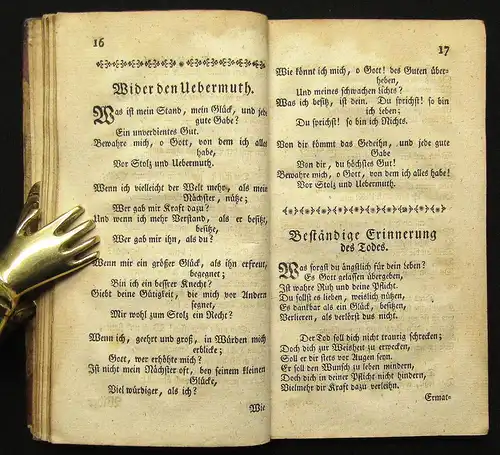 16
Wider den Uebermuth.
Was ist mein Stand, mein Glück, und jede
gute Gabe?
Ein unverdientes Gut.
Bewahre mich, o Gott, von dem ich alles
habe,
Vor Stolz und Uebermuth.
Wenn ich vielleicht der Welt mehr, als mein
Nächster, nütze;
Wer gab mir Kraft dazu?
Und wenn ich mehr Verstand, als er besitzt,
besitze,
Wer gab mir ihn, als du?
Wenn mir ein größer Glück, als ihn erfreut,
begegnet;
Bin ich ein beßrer Knecht?
Giebt deine Gütigkeit, die mich vor Andern
segnet,
Mir wohl zum Stolz ein Recht?
Wenn ich, geehrt und groß, in Würden mich
erblicke;
Gott, wer erhöhte mich?
Ist nicht mein Nächster oft, bey seinem kleinen
Glücke,
Viel würdiger, als ich?
Wie
17
Wie könnt ich mich, o Gott! des Guten über-
heben,
Und meines schwachen Lichts?
Was ich besitz, ist dein. Du sprichst! so bin
ich Leben;
Du sprichst! so bin ich Nichts.
Von dir kömmt das Gedeihn, und jede gute
Gabe
Von dir, du höchstes Gut!
Bewahre mich, o Gott, von dem ich alles habe!
Vor Stolz und Uebermuth.
Beständige Erinnerung
des Todes.
Was sorgst du ängstlich für dein Leben?
Es Gott gelassen übergeben,
Ist wahre Ruh und deine Pflicht.
Du sollst es lieben, weislich nützen,
Es dankbar als ein Glück, besitzen,
Verlieren, als verlörst dus nicht.
Der Tod soll dich nicht traurig schrecken;
Doch dich zur Weisheit zu erwecken,
Soll er dir stets vor Augen seyn.
Er soll den Wunsch zu leben mindern,
Doch dich in deiner Pflicht nicht hindern,
Vielmehr dir Kraft dazu verleihn.
Ermat-